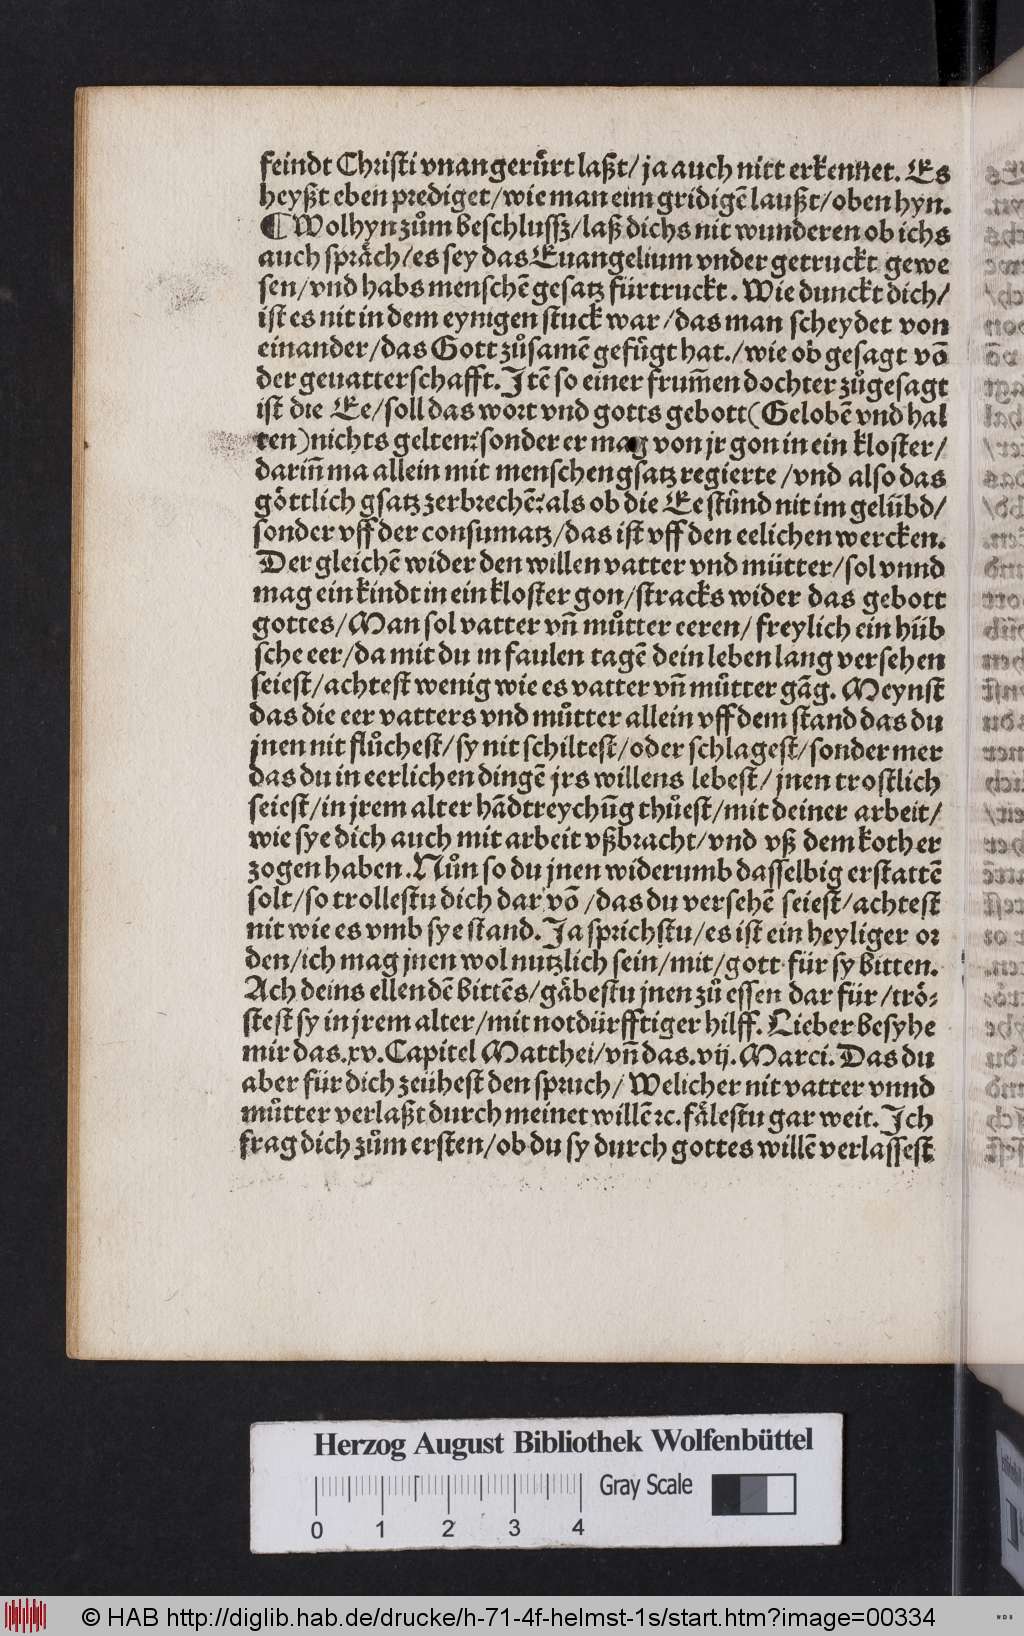 feindt Christi vnangerürt laßt/ ja auch nitt erkennet. Es
heyßt eben prediget/ wie man eim gridigē laußt/ oben hyn.
¶ Wolhyn zům beschlussz/ laß dichs nit wunderen ob ichs
auch spräch/ es sey das Euangelium vnder getruckt gewe
sen/ vnd habs menschē gesatz fürtruckt. Wie dunckt dich/
ist es nit in dem eynigen stuck war/ das man scheydet von
einander/ das Gott zůsamē gefügt hat./ wie ob gesagt vō
der geuatterschafft. Itē so einer frum̄en dochter zůgesagt
ist die Ee/ soll das wort vnd gotts gebott (Gelobē vnd hal
ten) nichts gelten: sonder er mag von jr gon in ein kloster/
darin̄ ma allein mit menschen gsatz regierte/ vnd also das
göttlich gsatz zerbrechē: als ob die Ee stünd nit im gelübd/
sonder vff der consumatz/ das ist vff den eelichen wercken.
Der gleichē wider den willen vatter vnd mütter/ sol vnnd
mag ein kindt in ein kloster gon/ stracks wider das gebott
gottes/ Man sol vatter vn̄ můtter eeren/ freylich ein hüb
sche eer/ da mit du in faulen tagē dein leben lang versehen
seiest/ achtest wenig wie es vatter vn̄ můtter gāg. Meynst
das die eer vatters vnd můtter allein vff dem stand das du
jnen nit flůchest/ sy nit schiltest/ oder schlagest/ sonder mer
das du in eerlichen dingē jrs willens lebest/ jnen trostlich
seiest/ in jrem alter hādtreychūg thůest/ mit deiner arbeit/
wie sye dich auch mit arbeit vßbracht/ vnd vß dem koth er
zogen haben. Nůn so du jnen widerumb dasselbig erstattē
solt/ so trollestu dich dar vō/ das du versehē seiest/ achtest
nit wie es vmb sye stand. Ja sprichstu/ es ist ein heyliger or
den/ ich mag jnen wol nutzlich sein/ mit/ gott für sy bitten.
Ach deins ellendē bittēs/ gäbestu jnen zů essen dar für/ trö⸗
stest sy in jrem alter/ mit notdürfftiger hilff. Lieber besyhe
mir das .xv. Capitel Matthei/ vn̄ das .vij. Marci. Das du
aber für dich zeühest den spruch/ Welicher nit vatter vnnd
můtter verlaßt durch meinet willē ꝛc. fälestu gar weit. Ich
frag dich zům ersten/ ob du sy durch gottes willē verlassest
Herzog August Bibliothek Wolfenbüttel
Gray Scale
0 1 2 3 4
© HAB http://diglib.hab.de/drucke/h-71-4f-helmst-1s/start.htm?image=00334